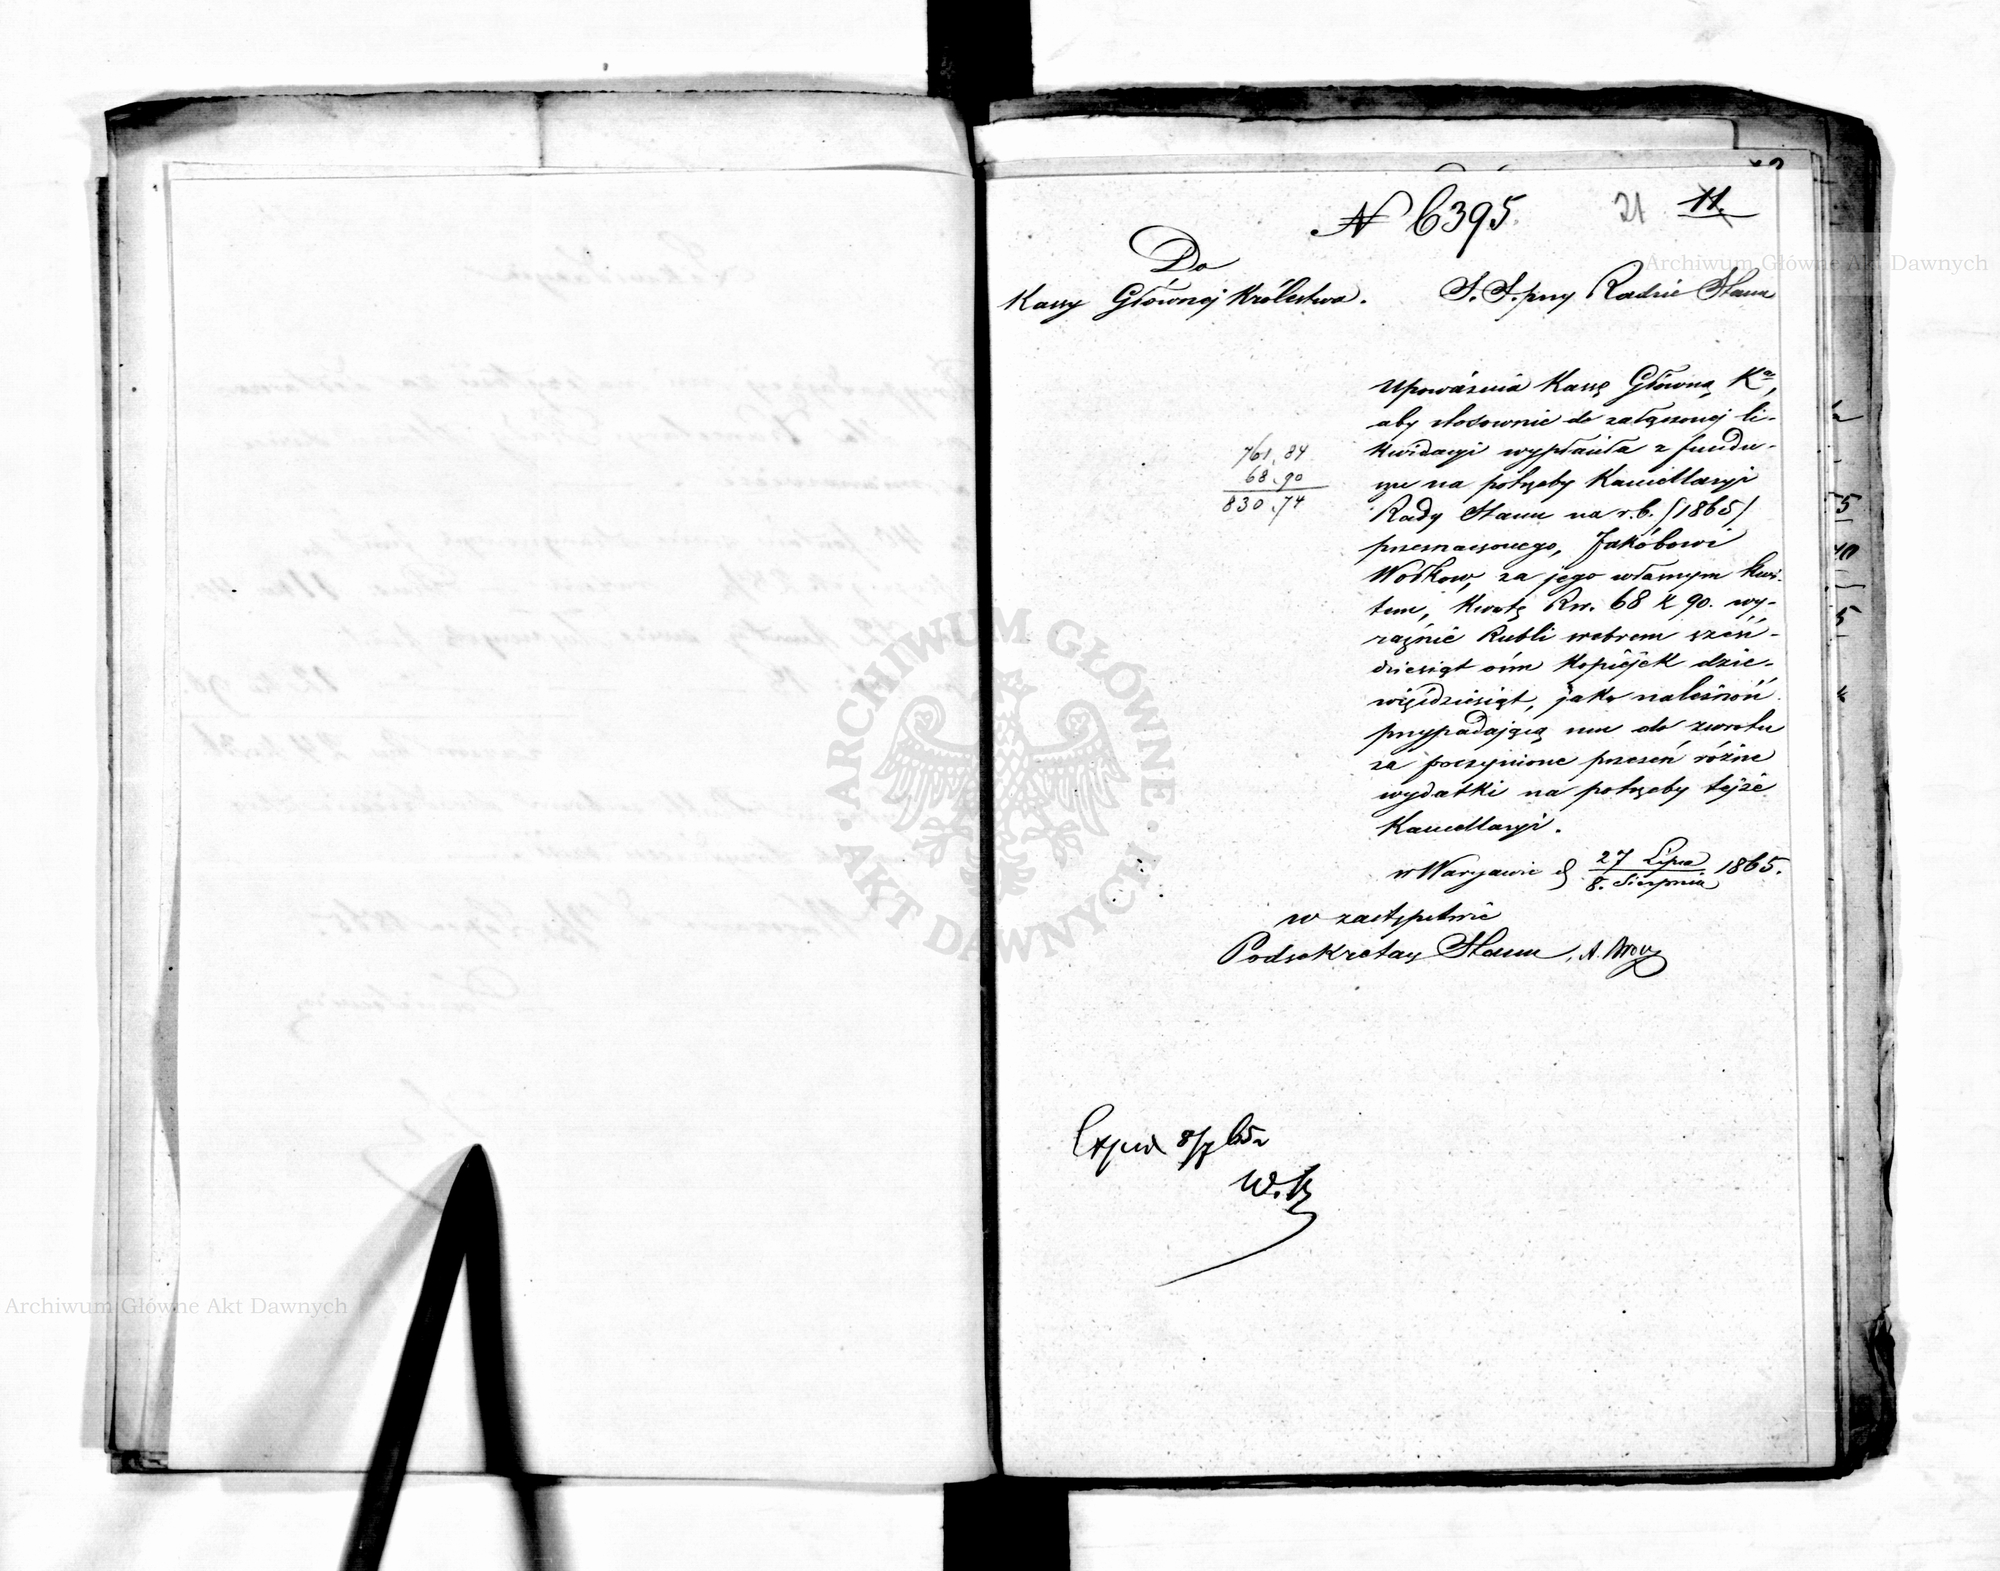 N 6395.
21 11.
Do
Kassy Głównej Królestwa.
S. S. przy Radzie Stanu
761,84
68.90
830.74
Upoważnia Kassę Główną Ka,
aby stosownie do załączonej li-
kwidacyi wypłaciła z fundu-
szu na potrzeby Kancellaryi
Rady Stanu na r.b. /1865/
przeznaczonego, Jakóbowi
Wołkow, za jego własnym kwi-
tem, kwotę Rsr. 68 k 90. wy-
raźnie Rubli srebrem sześć-
dziesiąt ośm kopiejek dzie-
więćdziesiąt, jako należność
przypadającą mu do zwrotu
za poczynione przezeń różne
wydatki na potrzeby tejże
Kancellaryi.
w Warszawie d 27 Lipca / 8. Sierpnia 1865.
w zastępstwie
Podsekretarz Stanu, A.
8/7 65
W.
Archiwum Główne Akt Dawnych
Archiwum Główne Akt Dawnych
ARCHIWUM GŁÓWNE AKT DAWNYCH